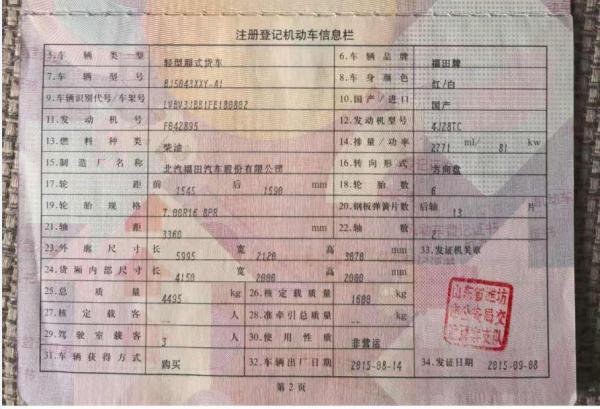 注册登记机动车信息栏
5.车辆类型 轻型厢式货车 6.车辆品牌 福田牌
7.车辆型号 BJ5043XXY-A1 8.车身颜色 红/白
9.车辆识别代号/车架号 10.国产/进口 国产
11.发动机号 FB42895 12.发动机型号 4J28TC
13.燃料种类 柴油 14.排量/功率 2771 ml/ 81 kw
15.制造厂名称 北汽福田汽车股份有限公司 16.转向形式 方向盘
17.轮距 前 1545 后 1590 mm 18.轮胎数 6
19.轮胎规格 7.00R16 8PR 20.钢板弹簧片数 后轴 13 片
21.轴距 3360 mm 22.轴数 2
23.外廓尺寸 长 5995 宽 2120 高 3070 mm 33.发证机关章
24.货厢内部尺寸 长 4150 宽 2000 高 2000 mm
25.总质量 4495 kg 26.核定载质量 1600 kg
27.核定载客 -- 人 28.准牵引总质量 -- kg
29.驾驶室载客 3 人 30.使用性质 非营运
31.车辆获得方式 购买 32.车辆出厂日期 2015-08-14 34.发证日期 2015-09-08
山东省潍坊
市公安局交
警支队
第2页